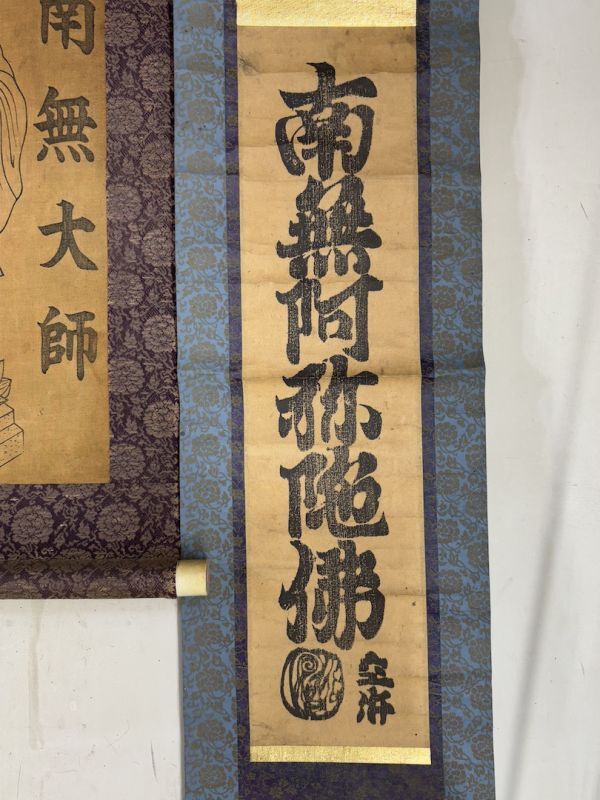 南無阿弥陀佛
空海
南無大師